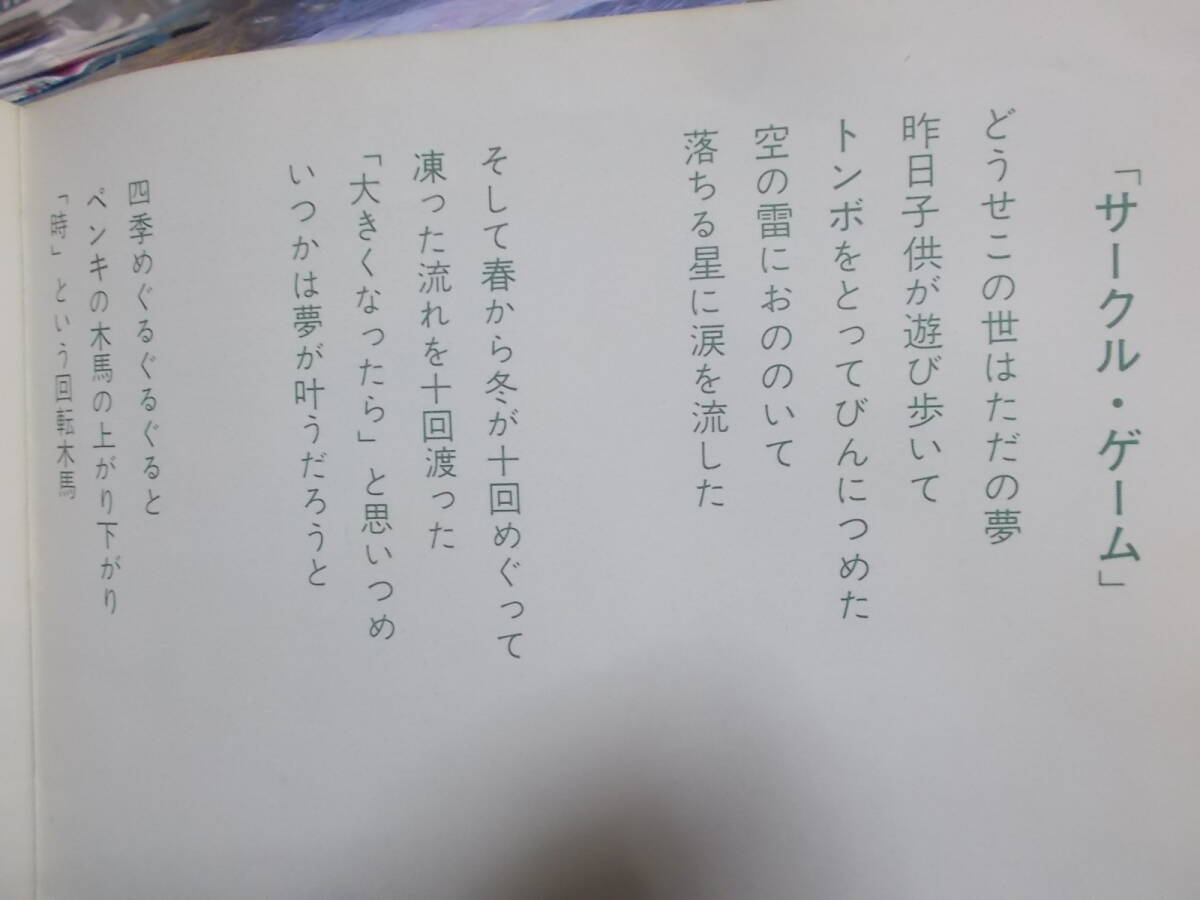 「サークル・ゲーム」
どうせこの世はただの夢
昨日子供が遊び歩いて
トンボをとってびんにつめた
空の雷におののいて
落ちる星に涙を流した
そして春から冬が十回めぐって
凍った流れを十回渡った
「大きくなったら」と思いつめ
いつかは夢が叶うだろうと
四季めぐるぐるぐると
ペンキの木馬の上がり下がり
「時」という回転木馬